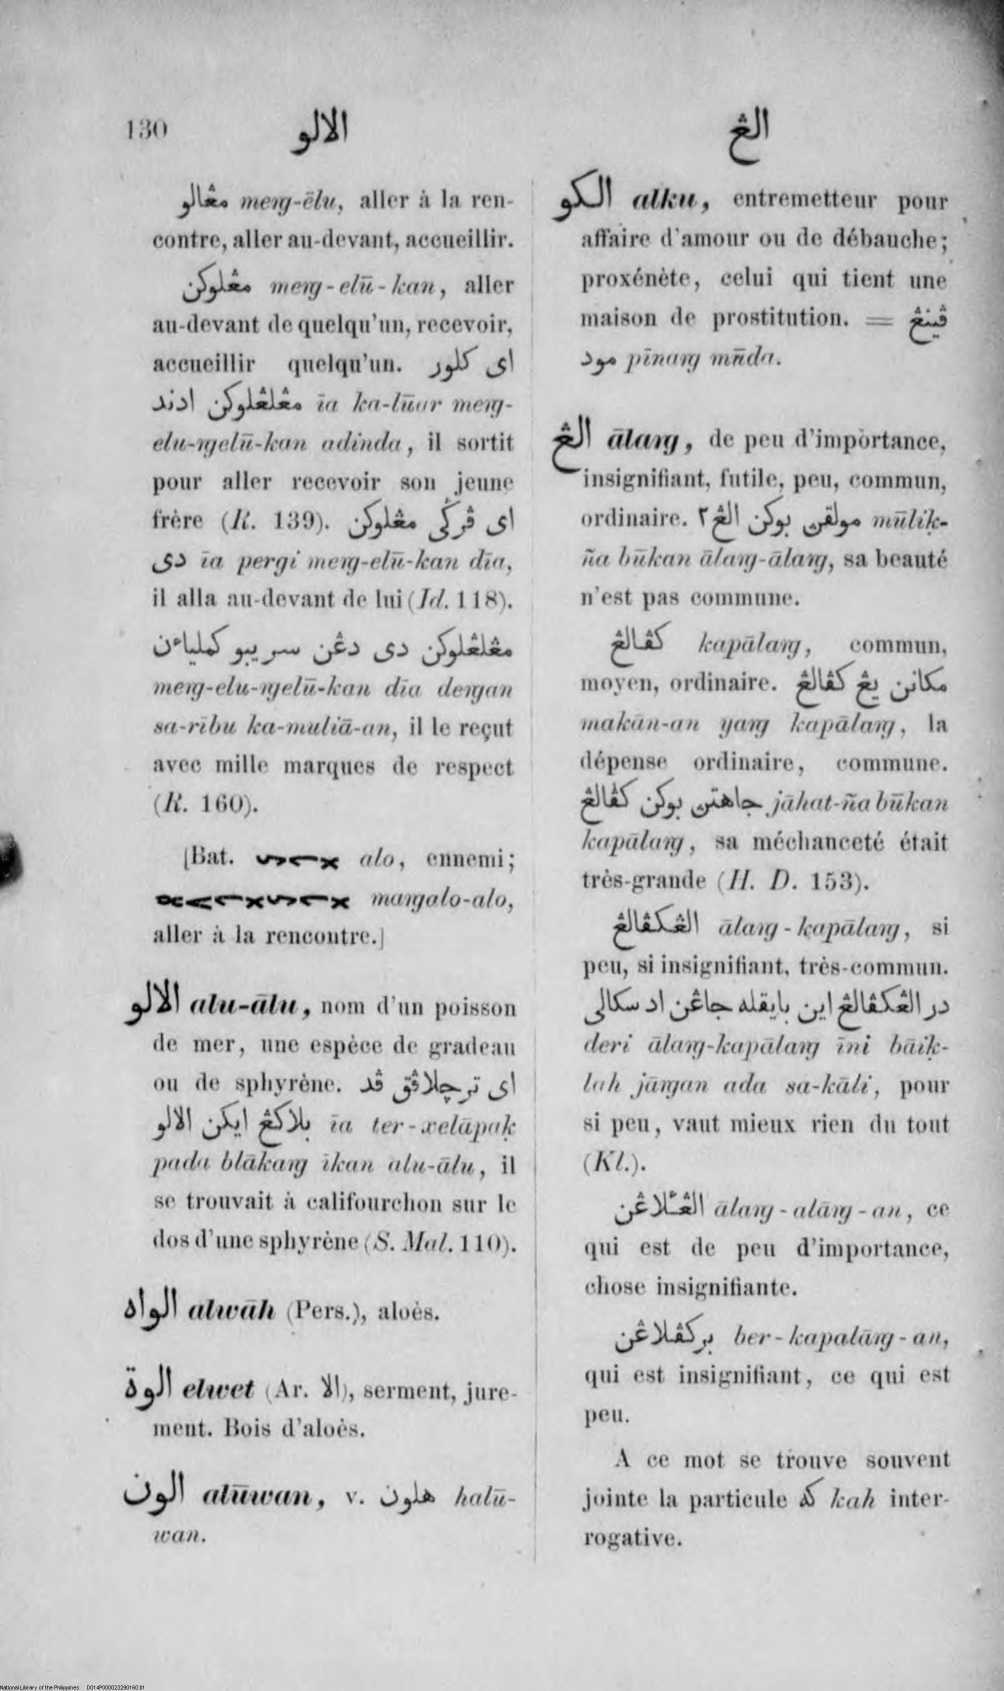 130
الالو
الڠ
مڠالو meŋ-ēlu, aller à la ren-
contre, aller au-devant, accueillir.
مڠلوكن meŋ-elū-kan, aller
au-devant de quelqu'un, recevoir,
accueillir quelqu'un. اى كلور
مڠلڠلوكن ادند īa ka-lūar meŋ-
elu-ŋelū-kan adinda, il sortit
pour aller recevoir son jeune
frère (R. 139). اى ڤرݢى مڠلوكن
دى īa pergi meŋ-elū-kan dīa,
il alla au-devant de lui (Jd. 118).
مڠلڠلوكن دى دڠن سريبو كملياءن
meŋ-elu-ŋelū-kan dīa deŋan
sa-rību ka-muliā-an, il le reçut
avec mille marques de respect
(R. 160).
[Bat. alo, ennemi;
maŋalo-alo,
aller à la rencontre.]
الالو alu-ālu, nom d'un poisson
de mer, une espèce de gradeau
ou de sphyrène. اى ترچلاڤق ڤد
بلاكڠ ايكن الالو īa ter-xelāpaḳ
pada blākaŋ īkan alu-ālu, il
se trouvait à califourchon sur le
dos d'une sphyrène (S. Mal. 110).
الواه alwāh (Pers.), aloès.
الوة elwet (Ar. الا), serment, jure-
ment. Bois d'aloès.
الون alūwan, v. هلون halū-
wan.
الكو alku, entremetteur pour
affaire d'amour ou de débauche;
proxénète, celui qui tient une
maison de prostitution. = ڤينڠ
مود pīnaŋ mūda.
الڠ ālaŋ, de peu d'importance,
insignifiant, futile, peu, commun,
ordinaire. مولقن بوكن الڠ٢ mūliḳ-
ña būkan ālaŋ-ālaŋ, sa beauté
n'est pas commune.
كڤالڠ kapālaŋ, commun,
moyen, ordinaire. مكانن يڠ كڤالڠ
makān-an yaŋ kapālaŋ, la
dépense ordinaire, commune.
جاهتن بوكن كڤالڠ jāhat-ña būkan
kapālaŋ, sa méchanceté était
très-grande (H. D. 153).
الڠكڤالڠ ālaŋ-kapālaŋ, si
peu, si insignifiant, très-commun.
در الڠكڤالڠ اين بايقله جاڠن اد سكالى
deri ālaŋ-kapālaŋ īni bāiḳ-
lah jāŋan ada sa-kāli, pour
si peu, vaut mieux rien du tout
(Kl.).
ālaŋ-alāŋ-an, ce
qui est de peu d'importance,
chose insignifiante.
بركڤلاڠن ber-kapalāŋ-an,
qui est insignifiant, ce qui est
peu.
A ce mot se trouve souvent
jointe la particule كه kah inter-
rogative.
National Library of the Philippines